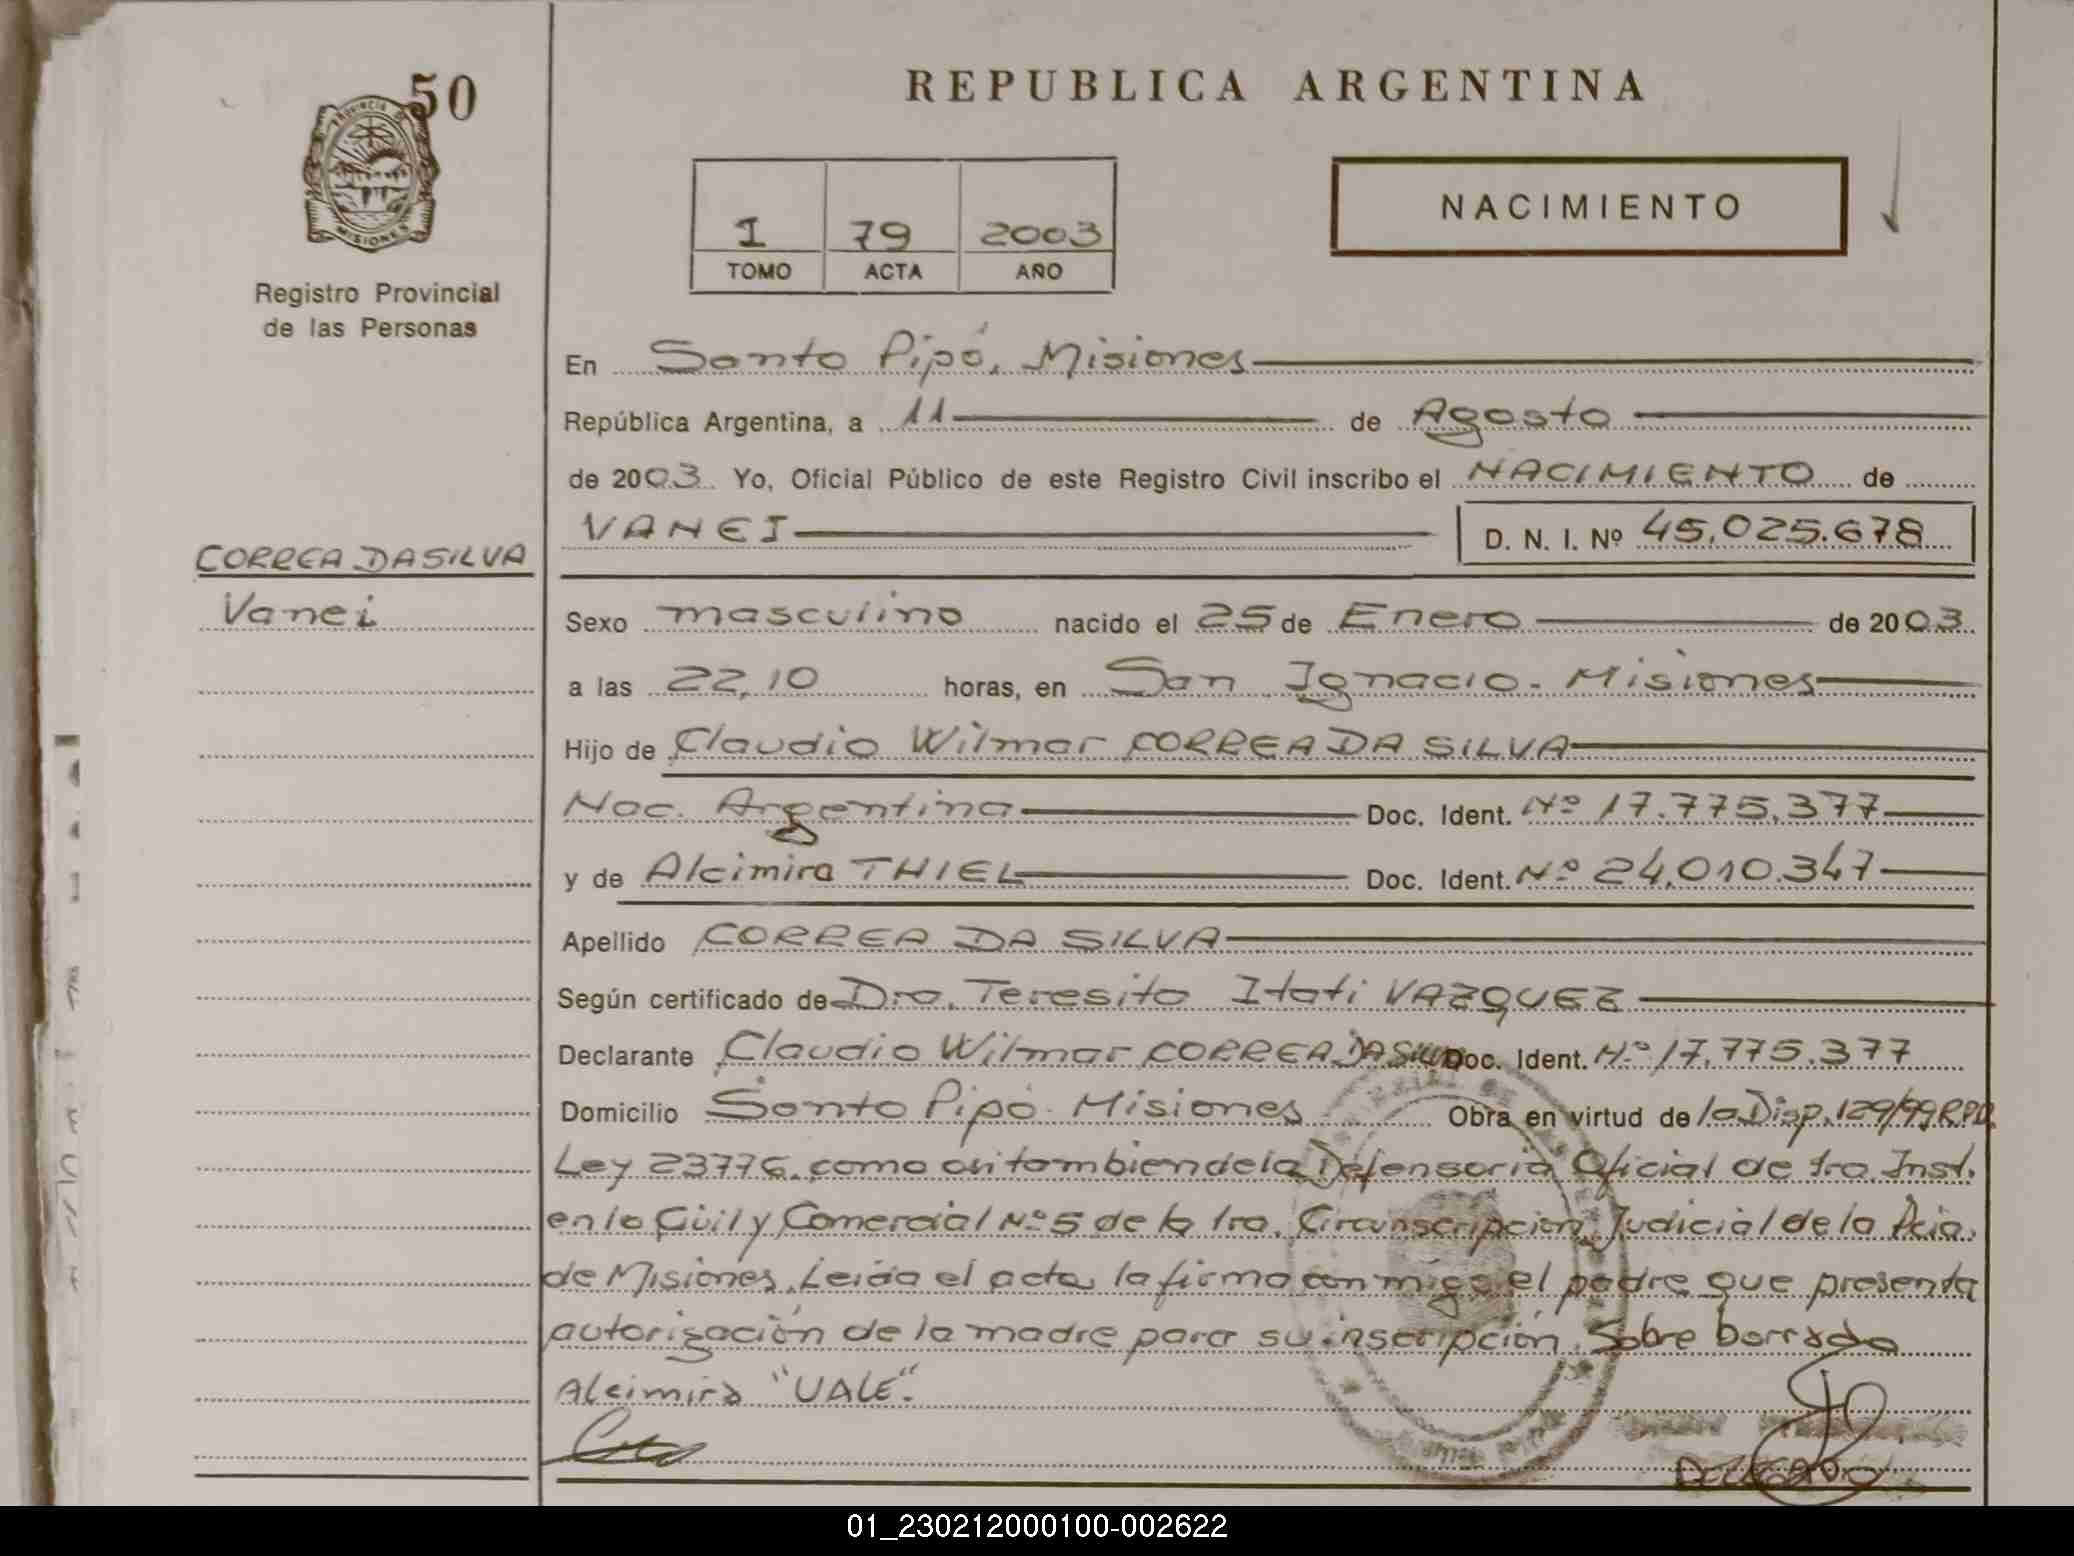 50
PROVINCIA DE
MISIONES
Registro Provincial
de las Personas
REPUBLICA ARGENTINA
1 79 2003
TOMO ACTA AÑO
NACIMIENTO
En Santo Pipó, Misiones
República Argentina, a 11 de Agosto
de 2003. Yo, Oficial Público de este Registro Civil inscribo el NACIMIENTO de
VANEI D. N. I. Nº 45.025.678
CORREA DA SILVA
Vanei
Sexo masculino nacido el 25 de Enero de 2003.
a las 22,10 horas, en San Ignacio - Misiones
Hijo de Claudio Wilmar CORREA DA SILVA
Nac. Argentina Doc. Ident. Nº 17.775.377
y de Alcimira THIEL Doc. Ident. Nº 24.010.347
Apellido CORREA DA SILVA
Según certificado de Dra. Teresita Itati VAZQUEZ
Declarante Claudio Wilmar CORREA DA SILVA Doc. Ident. Nº 17.775.377
Domicilio Santo Pipó - Misiones Obra en virtud de la Disp. 129/99 R.P.P.
Ley 23776. como asi tambien de la Defensoria Oficial de 1ra. Inst.
en lo Civil y Comercial Nº 5 de la 1ra. Circunscripcion Judicial de la Pcia.
de Misiones. Leida el acta la firma con migo el padre que presenta
autorización de la madre para su inscripción. Sobre borrado
Alcimira "VALE".
DELEGADO
01_230212000100-002622